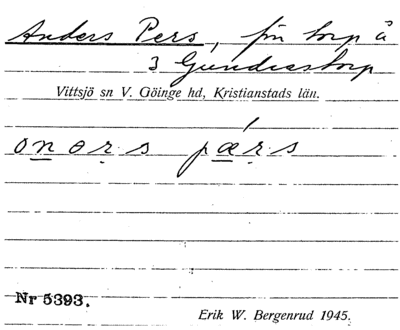 Anders Pers, fr torp å
3 Gundrastorp
Vittsjö sn V. Göinge hd, Kristianstads län.
oners pærs
Nr 5393.
Erik W. Bergenrud 1945.